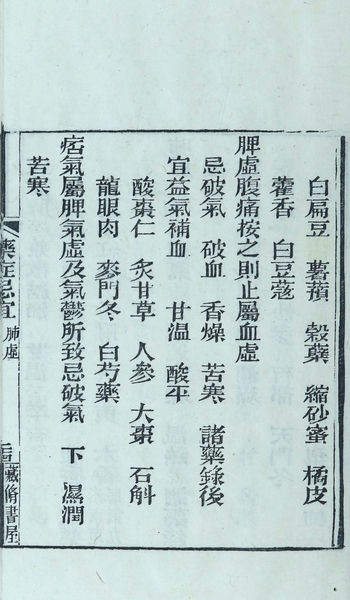 白扁豆　薯蕷　穀蘗　縮砂蜜　橘皮
藿香　白豆蔻
脾虛腹痛按之則止屬血虛
忌破氣　破血　香燥　苦寒　諸藥錄後
宜益氣補血　甘温　酸平
酸棗仁　炙甘草　人參　大棗　石斛
龍眼肉　麥門冬　白芍藥
痞氣屬脾氣虛及氣鬱所致忌破氣　下　濕潤
苦寒
藥症忌宜　肺虛
藏脩書屋